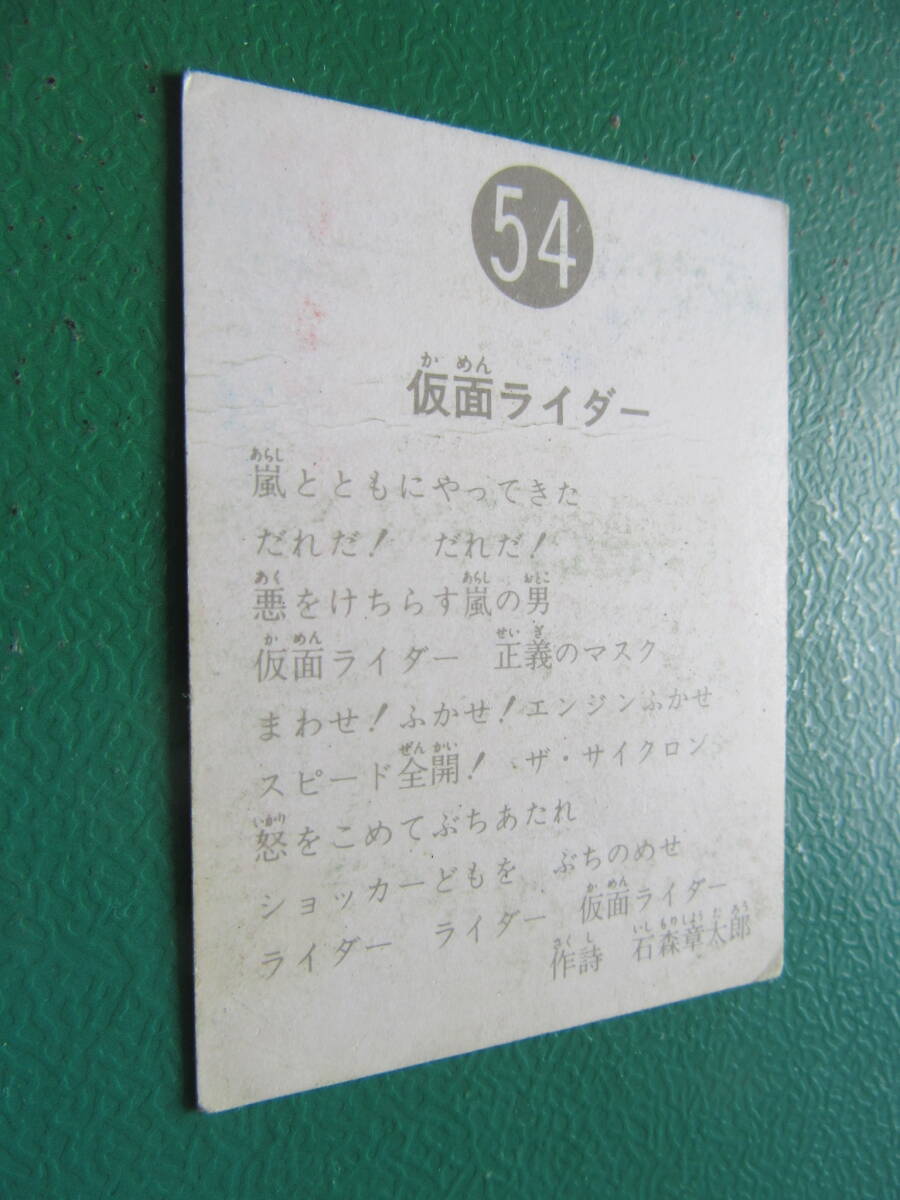 54
仮面ライダー
嵐とともにやってきた
だれだ！　だれだ！
悪をけちらす嵐の男
仮面ライダー　正義のマスク
まわせ！ふかせ！エンジンふかせ
スピード全開！　ザ・サイクロン
怒をこめてぶちあたれ
ショッカーどもを　ぶちのめせ
ライダー　ライダー　仮面ライダー
作詩　石森章太郎